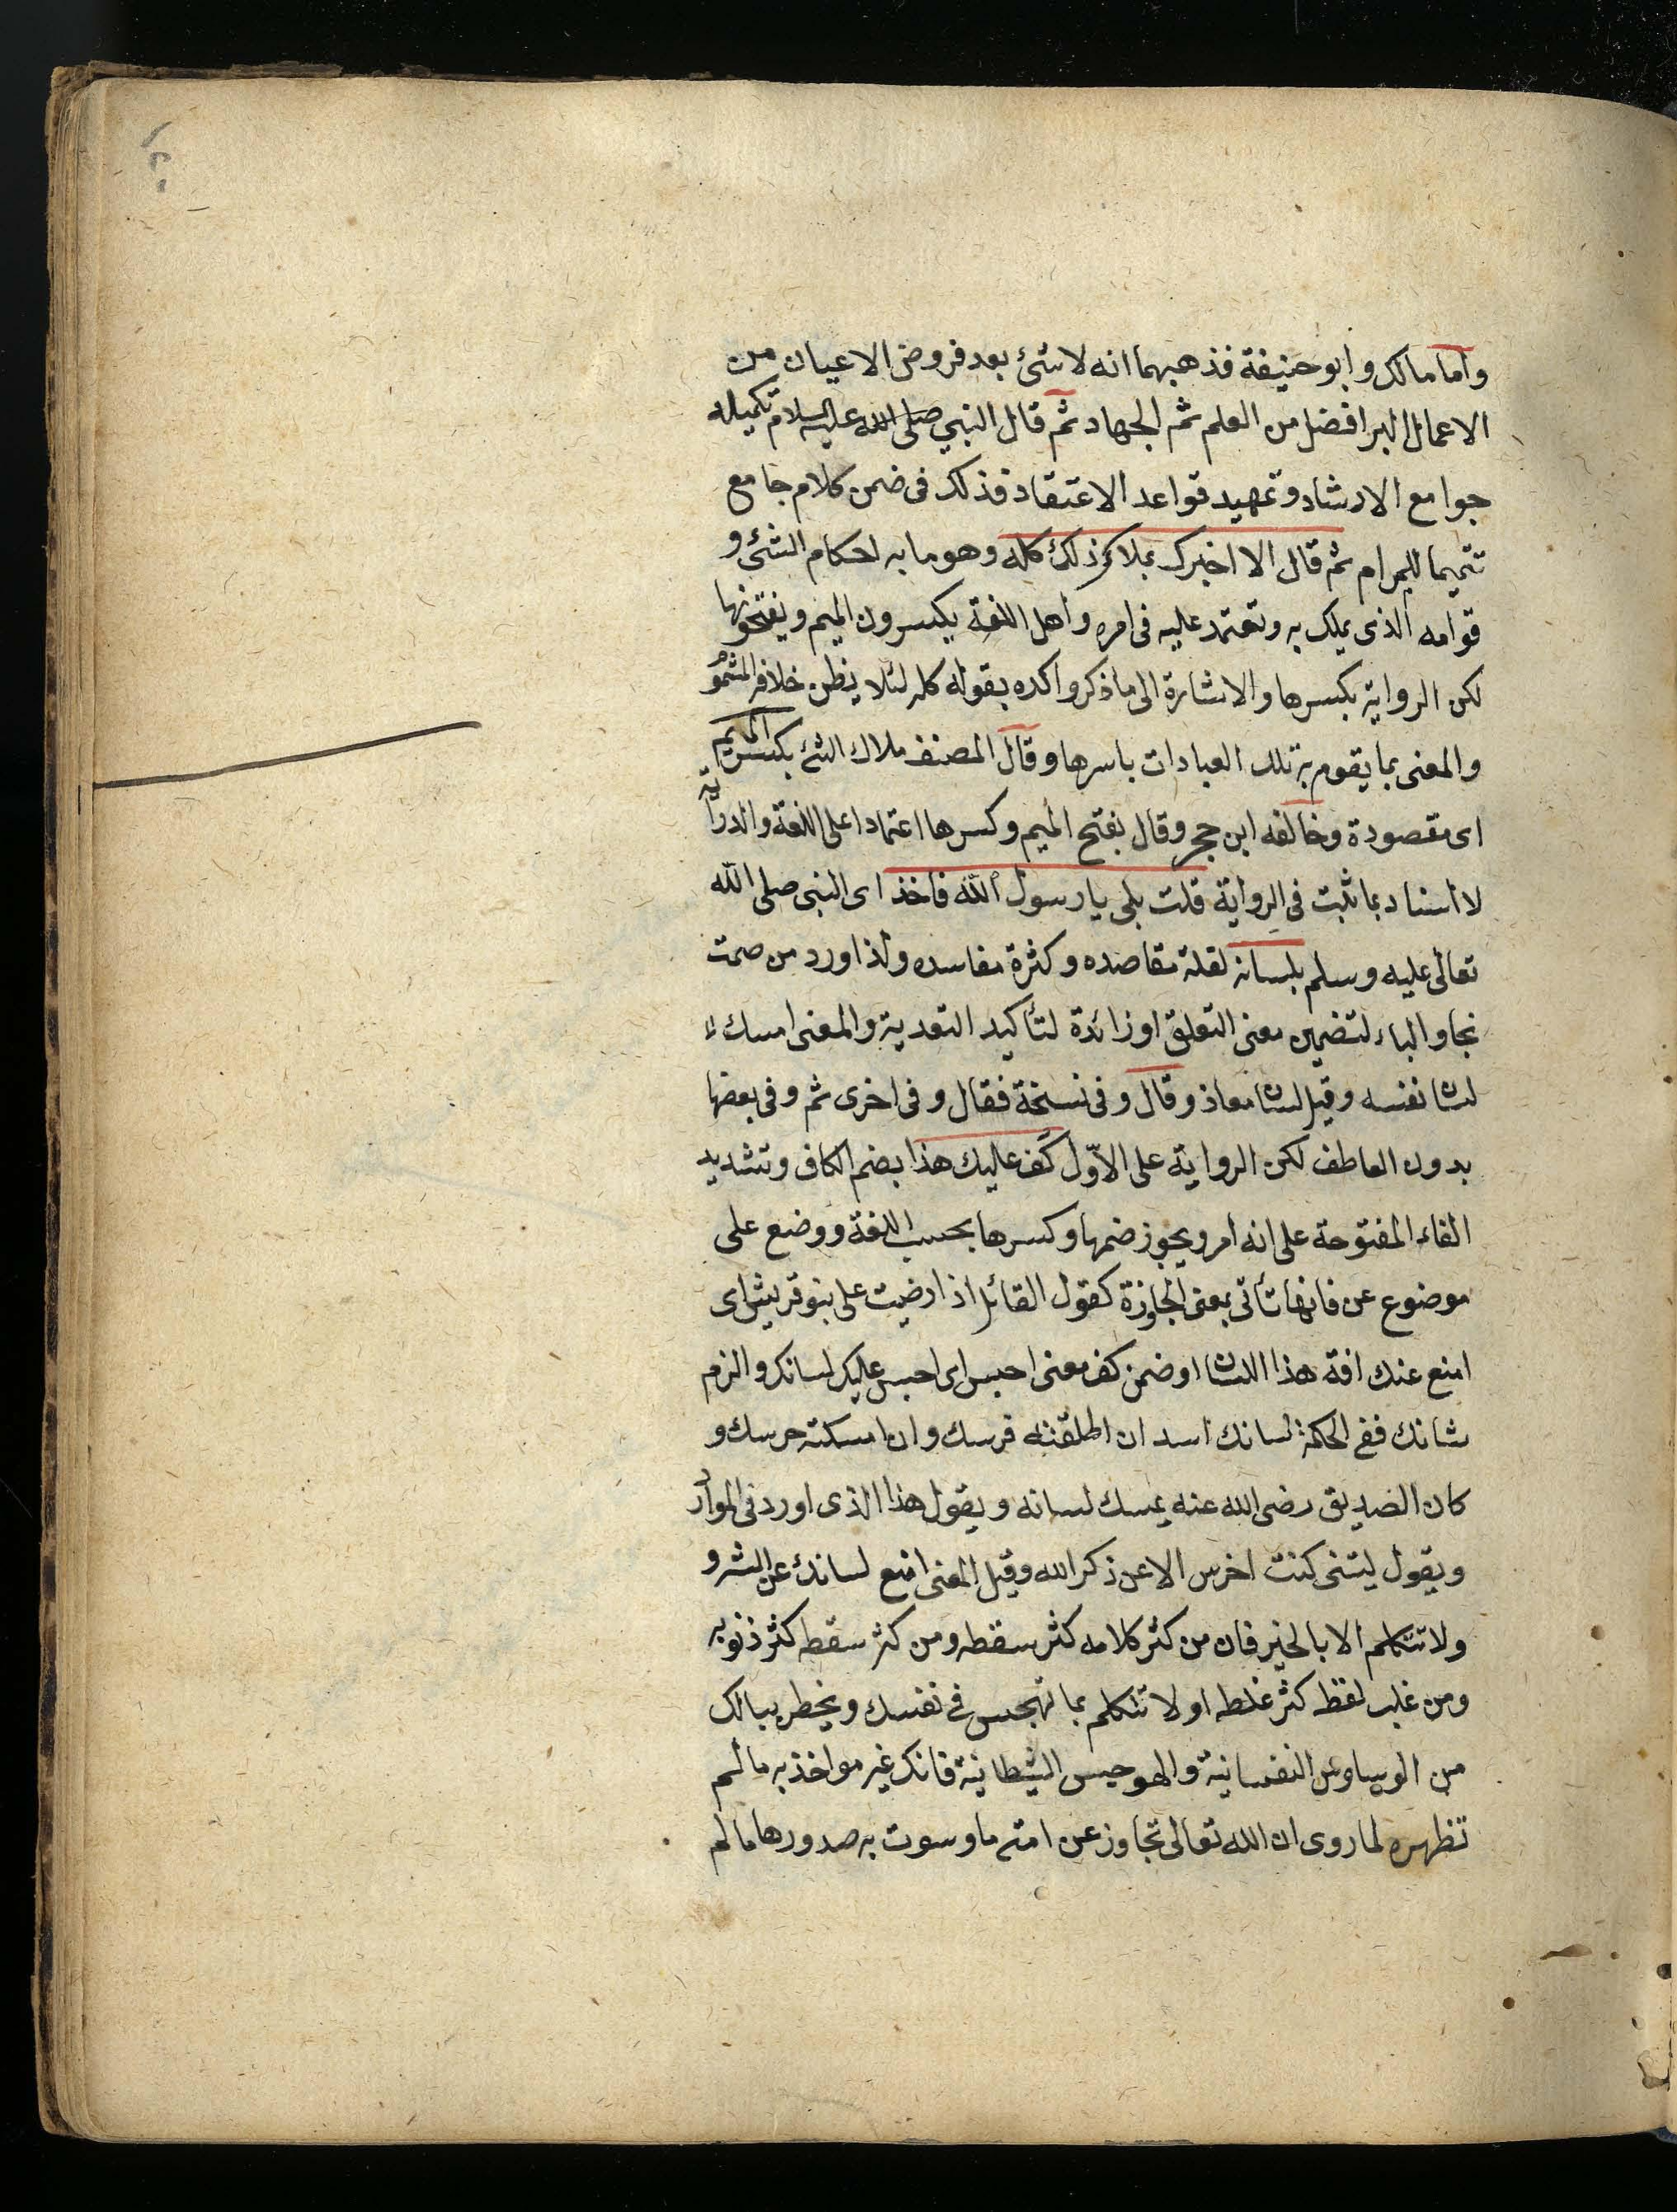 واما مالك وابو حنيفة فذهبهما انه لا شئ بعد فروض الاعيان من
الاعمال البر افضل من العلم ثم الجهاد ثم قال النبي صلى الله عليه السلام تكميله
جوامع الارشاد وتمهيد قواعد الاعتقاد فذلك فى ضمن كلام جامع
تتميما للمرام ثم قال الا اخبرك بملاك ذلك كله وهو ما به احكام الشئ و
قوامه الذى يملك به وتعتمد عليه فى امره واهل اللغة يكسرون الميم ويفتحونها
لكن الرواية بكسرها والاشارة الى ما ذكر واكده بقوله كله لئلا يظن خلاف الشمو
والمعنى بما يقوم به تلك العبادات باسرها وقال المصنف ملاك الشئ بكسر الميم
اى مقصودة وخالفه ابن حجر وقال بفتح الميم وكسرها اعتمادا على اللغة والدراية
لا اسناد بما ثبت فى الرواية قلت بلى يا رسول الله فاخذ اى النبى صلى الله
تعالى عليه وسلم بلسانه لقلة مقاصده وكثرة مفاسده ولذا ورد من صمت
نجا والباء لتضمين معنى التعلق او زائدة لتأكيد التعدية والمعنى امسك
لسان نفسه وقيل لسان معاذ وقال وفى نسخة فقال وفى اخرى ثم وفى بعضها
بدون العاطف لكن الرواية على الاوّل كُف عليك هذا بضم الكاف وتشديد
الفاء المفتوحة على انه امر ويجوز ضمها وكسرها بحسب اللغة ووضع على
موضوع عن فانها تأتى بمعنى المجاوزة كقول القائل اذا رضيت على بنو قريش اى
امنع عنك افة هذا اللسان او ضمن كف معنى احبس اى احبس عليك لسانك والزم
شانك ففى الحكمة لسانك اسد ان اطلقته فرسك وان امسكته حرسك و
كان الصديق رضى الله عنه يمسك لسانه ويقول هذا الذى اورد فى الموارد
ويقول ليتنى كنت اخرس الا عن ذكر الله وقيل المعنى امنع لسانك عن الشر و
ولا تتكلم الا بالخير فان من كثر كلامه كثر سقطه ومن كثر سقطه كثر ذنوبه
ومن غلب لفظه كثر غلطه او لا تتكلم بما تهجس فى نفسك ويخطر ببالك
من الوساوس النفسانية والهوجيس الشيطانية فانك غير مواخذ به ما لم
تظهره لما روى ان الله تعالى تجاوز عن امتى ما وسوت به صدورها ما لم